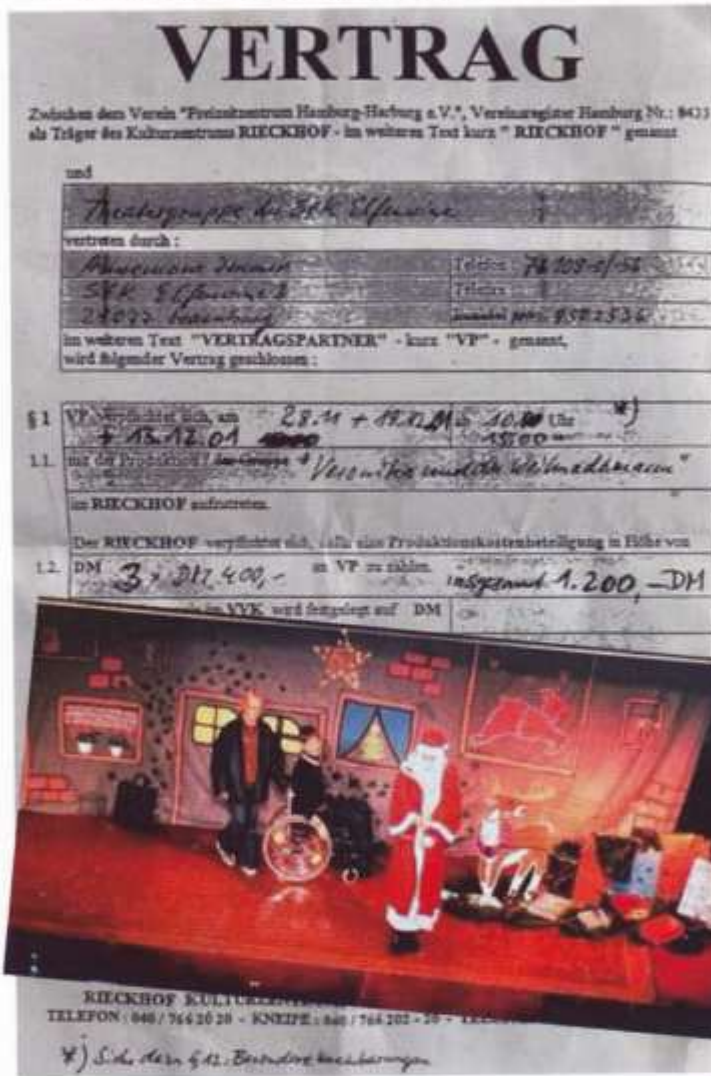 VERTRAG
Zwischen dem Verein "Freizeitzentrum Hamburg-Harburg e.V.", Vereinsregister Hamburg Nr.: 8423
als Träger des Kulturzentrums RIECKHOF - im weiteren Text kurz " RIECKHOF " genannt
und
Theatergruppe der SFK Elfenwiese
vertreten durch :
Telefon :
SFK Elfenwiese
Telefax
im weiteren Text "VERTRAGSPARTNER" - kurz "VP" - genannt,
wird folgender Vertrag geschlossen :
§ 1 VP verpflichtet sich, am 28.11 + 19.12.01 Uhr *)
+ 13.12.01 15.00
1.1. mit der Produktion / der Gruppe "Veronika und der Weihnachtsmann"
im RIECKHOF aufzutreten.
Der RIECKHOF verpflichtet sich, eine Produktionskostenbeteiligung in Höhe von
1.2. DM 3 x DM 400,- an VP zu zahlen. insgesamt 1.200,- DM
im VVK wird festgelegt auf DM
RIECKHOF
TELEFON : 040 / 766 20 20 - KNEIPE : 040 / 766 202 - 20 -
*) Siehe dazu § 12: Besondere